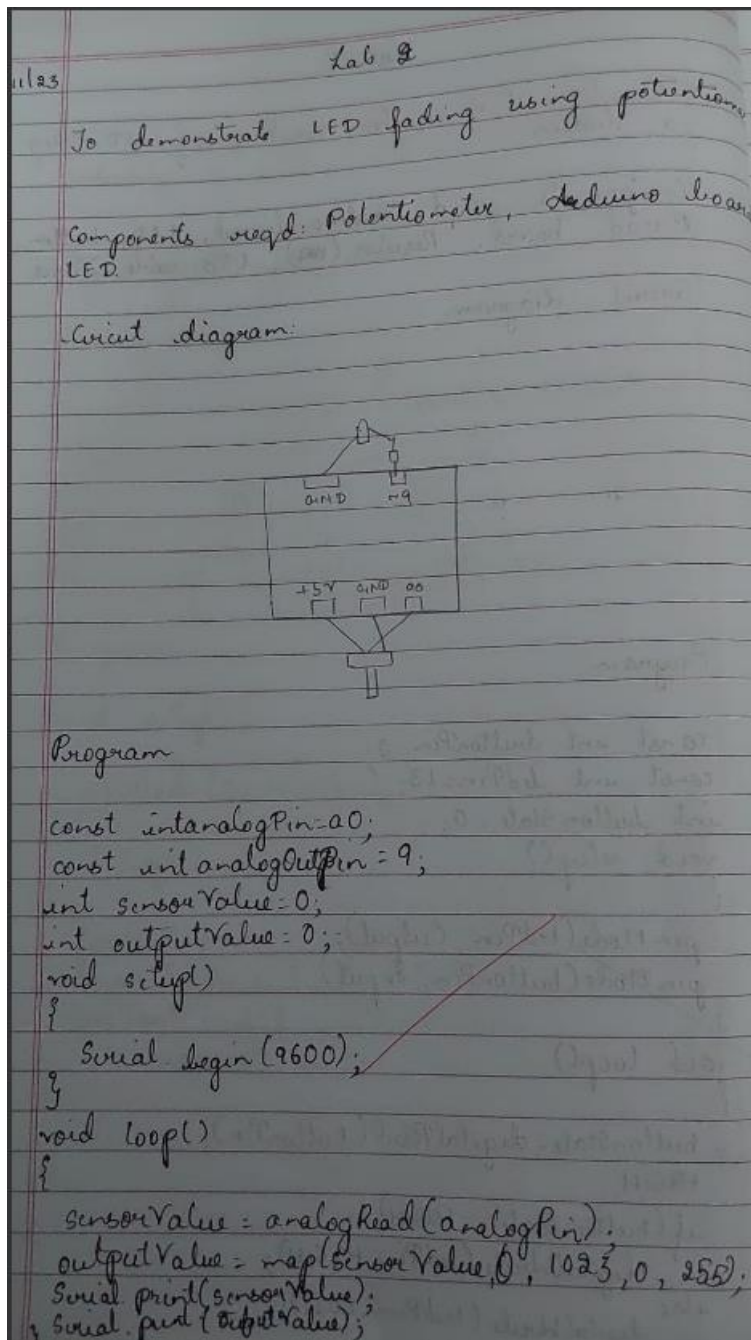 11/23
Lab 2
To demonstrate LED fading using potention
Components reqd: Potentiometer, Arduino boar
LED.
Circut diagram:
GND ~9
+5V GND a0
Program
const intanalogPin=a0;
const int analogOutPin = 9;
int sensorValue=0;
int outputValue=0;
void setup()
{
Serial begin (9600);
}
void loop()
{
sensorValue = analogRead(analogPin);
outputValue = map(sensorValue, 0, 1023, 0, 255);
Serial print(sensorValue);
Serial print(outputValue);